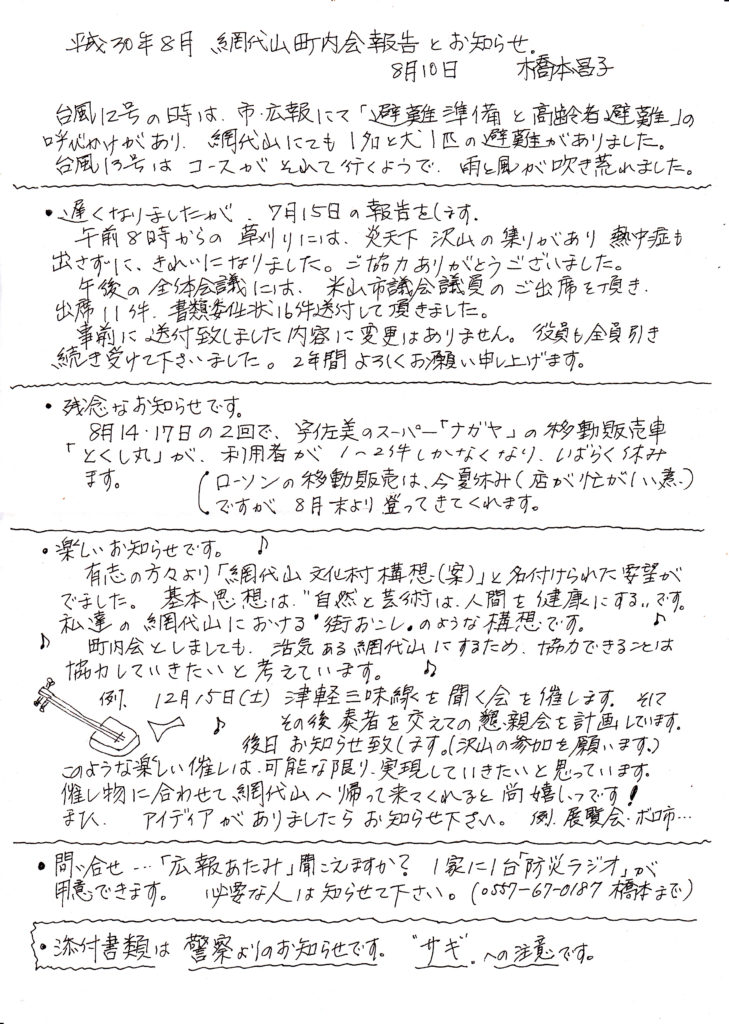 平成30年8月 網代山町内会報告とお知らせ。
8月10日 橋本昌子
台風12号の時は、市・広報にて「避難準備と高齢者避難」の
呼びかけがあり、網代山にても1名と犬1匹の避難がありました。
台風13号は コースが それて行くようで、雨と風が吹き荒れました。
・遅くなりましたが、7月15日の報告をします。
午前8時からの 草刈りには、炎天下 沢山の集りがあり 熱中症も
出さずに、きれいになりました。ご協力ありがとうございました。
午後の全体会議には、米山市議会議員のご出席を頂き、
出席11件、書類委任状16件送付して頂きました。
事前に送付致しました内容に変更はありません。役員も全員引き
続き受けて下さいました。2年間よろしくお願い申し上げます。
・残念なお知らせです。
8月14・17日の2回で、宇佐美のスーパー「ナガヤ」の移動販売車
「とくし丸」が、利用者が 1〜2件しかなくなり、しばらく休み
ます。
(ローソンの移動販売は、今夏休み(店が忙がしい為)
ですが 8月末より登ってきてくれます。
・楽しいお知らせです。♪
有志の方々より「網代山文化村構想(案)」と名付けられた要望が
でました。基本思想は、"自然と芸術は、人間を健康にする"です。
私達の網代山における"街おこし"のような構想です。
♪ 町内会としましても、活気ある網代山にするため、協力できることは
協力していきたいと考えています。♫
例、12月15日(土) 津軽三味線を聞く会を催します。そして
♪ その後奏者を交えての懇親会を計画しています。
後日お知らせ致します。(沢山の参加を願います。)
このような楽しい催しは、可能な限り、実現していきたいと思っています。
催し物に合わせて網代山へ帰って来てくれると尚嬉しいです!
また、アイディアがありましたらお知らせ下さい。例、展覧会・ボロ市…
・問い合せ…「広報あたみ」聞こえますか? 1家に1台「防災ラジオ」が
用意できます。必要な人は知らせて下さい。(0557-67-0187 橋本まで)
・添付書類は 警察よりのお知らせです。"サギ"への注意です。